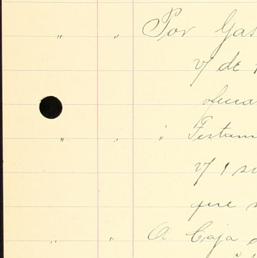 " " Por Gas
v/ de
" " " Testam
v/ 1 s
que
" " A Caja